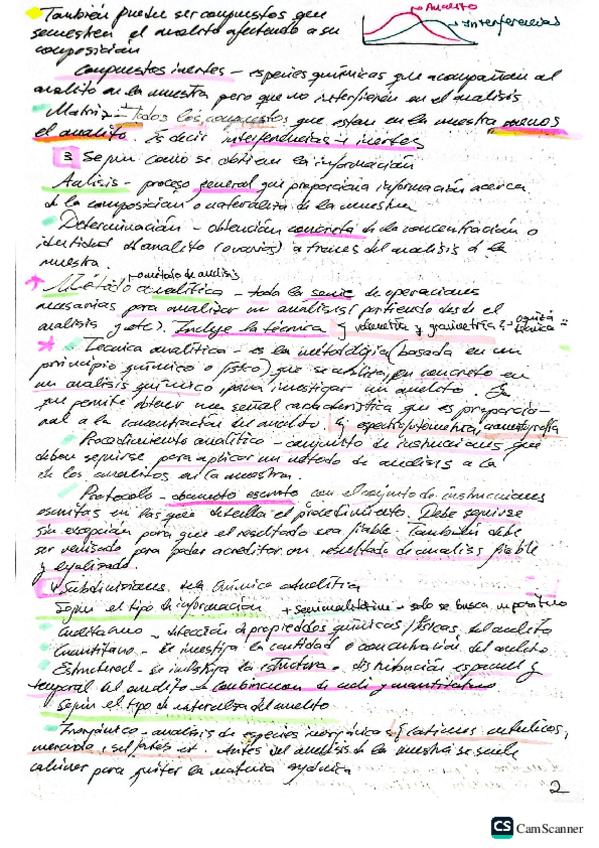 También pueden ser compuestos que
semejen el analito afectando a su
composición
Analito
Interferencias
Compuestos inertes - especies químicas que acompañan al
analito en la muestra pero que no interfieren en el analisis
Matriz - Todos los compuestos que estan en la muestra menos
el analito. Es decir interferencias e inertes
3 Según como se obtiene la información
Analisis - proceso general que proporciona información acerca
de la composicion o naturaleza de la muestra
Determinación - obtención concreta de la concentración o
identidad de analito (o varios) a traves del analisis de la
muestra
o método de analisis
Método analítico - toda la serie de operaciones
necesarias para analizar un análisis (partiendo desde el
analisis y etc). Incluye la técnica Ej volumetria y gravimetria
Tecnica analítica - es la metodología (basada en un
principio químico o físico) que se utiliza, en concreto en
un analisis químico, para investigar un analito. Es
que permite obtener una señal caracteristica que es proporcio-
nal a la concentración del analito. Ej espectrofotometria, cromatografía
Procedimiento analítico - conjunto de instrucciones que
deben seguirse para aplicar un método de análisis a la
de los analitos en la muestra.
Protocolo - documento escrito con el conjunto de instrucciones
escritas en las que detalla el procedimiento. Debe seguirse
sin excepción para que el resultado sea fiable. También debe
ser utilizado para poder acreditar un resultado de analisis fiable
y legalizado.
4 Subdivisiones de la Química analítica
Según el tipo de información + semicualitativo - solo se busca un positivo
Cualitativo - detección de propiedades químicas / físicas del analito
Cuantitativo - se investiga la cantidad o concentración del analito
Estructural - se investiga la estructura o distribución espacial y
temporal del analito → combinacion de cuali y cuantitativo
Según el tipo de naturaleza del analito
Inorgánico - analisis de especies inorgánicas Ej cationes metalicos,
mercurio, sulfatos etc. Antes del analisis de la muestra se suele
calcinar para quitar la materia orgánica
2
CS CamScanner